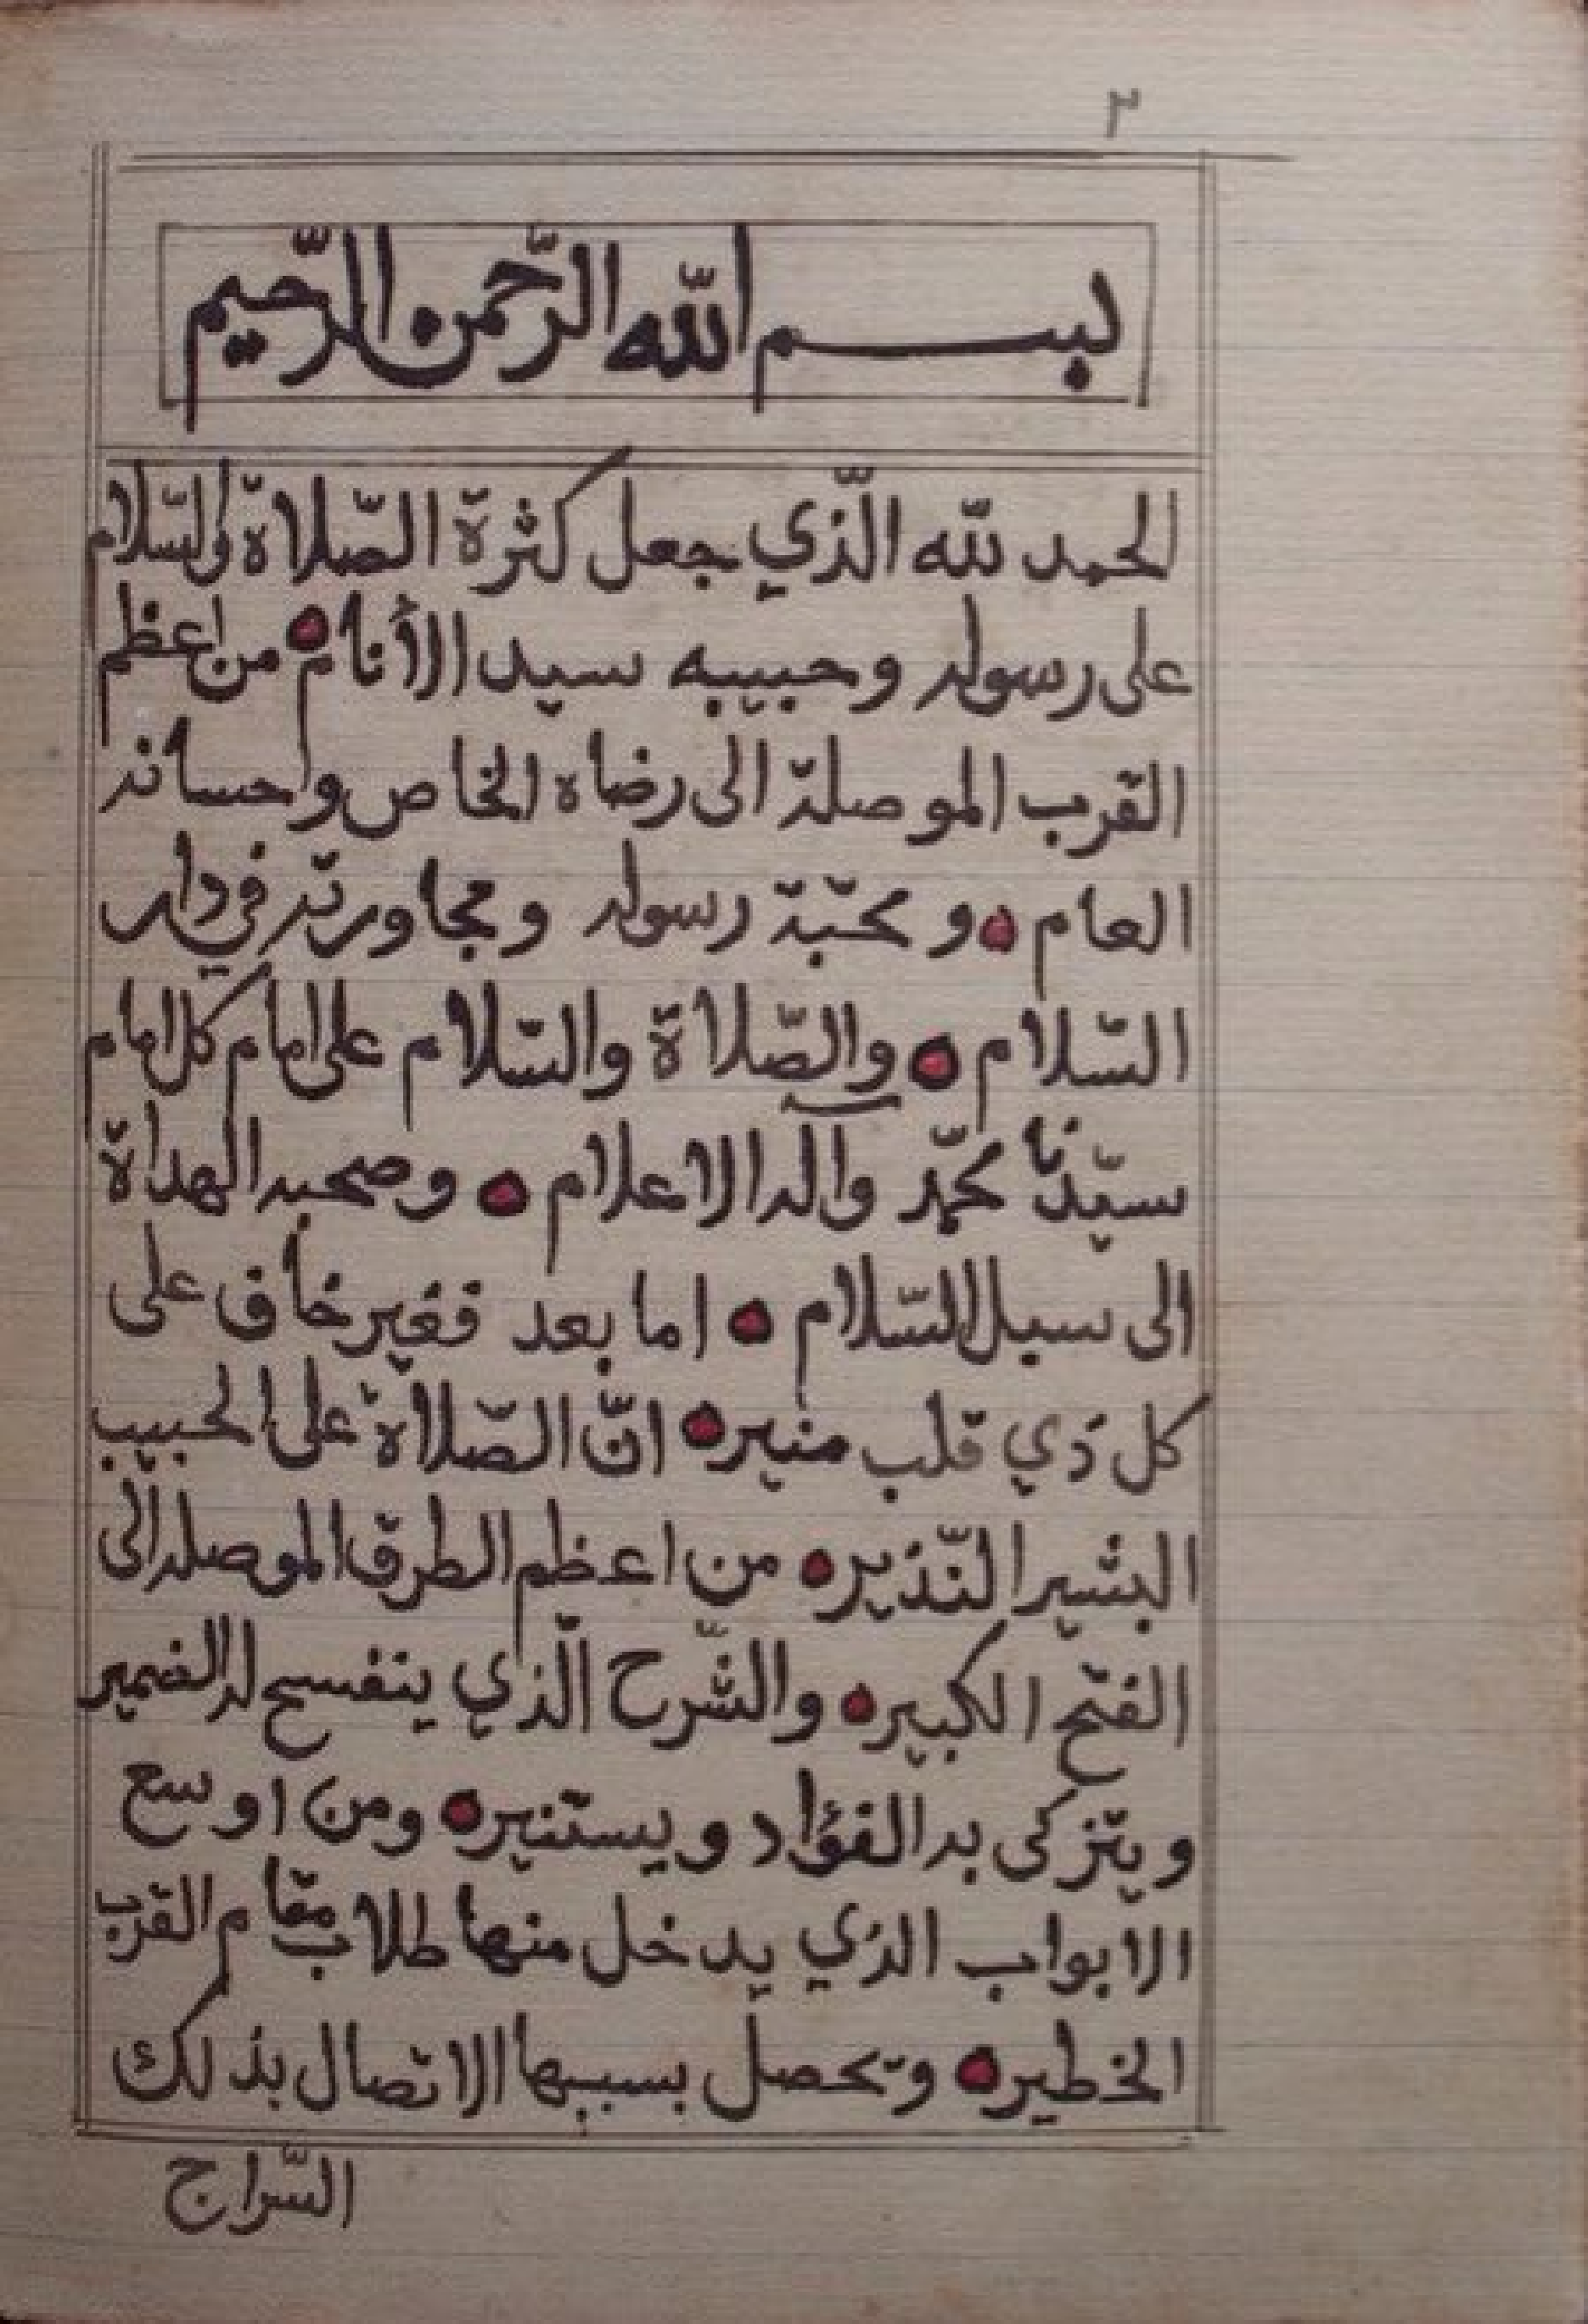 ٣
بسم الله الرّحمن الرّحيم
الحمد للّه الّذي جعل كثرة الصّلاة والسّلام
على رسوله وحبيبه سيد الأنام ه من اعظم
القرب الموصلة الى رضاه الخاص واحسانه
العام ه و محبّة رسوله ومجاورته في دار
السّلام ه والصّلاة والسّلام على امام كل امام
سيّدنا محمّد وآله الاعلام ه وصحبه الهداة
الى سبيل السّلام ه اما بعد فغير خاف على
كل ذي قلب منير ه انّ الصّلاة على الحبيب
البشير النّذير ه من اعظم الطرق الموصله الى
الفتح الكبير ه والشّرح الّذي ينفسح له الضمير
ويتزكى به الفؤاد ويستنير ه ومن اوسع
الابواب الذي يدخل منها طلاب مقام القرب
الخطير ه وتحصل بسببها الاتصال بذلك
السّراج